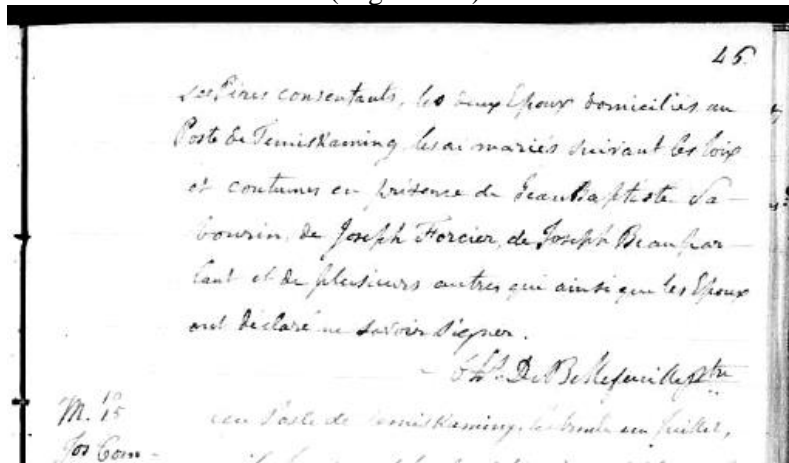 45.
Les Pères consentants, les deux Epoux domiciliés au
Poste de Temiskaming les ai mariés suivant les loix
et coutumes en présence de Jean Baptiste Sa-
bourin, de Joseph Forcier, de Joseph Beaupar-
lant et de plusieurs autres qui ainsi que les Epoux
ont déclaré ne savoir signer.
De Bellefeuille ptre
M. 15
au Poste de Temiskaming, le trente un juillet,
Jos Com-